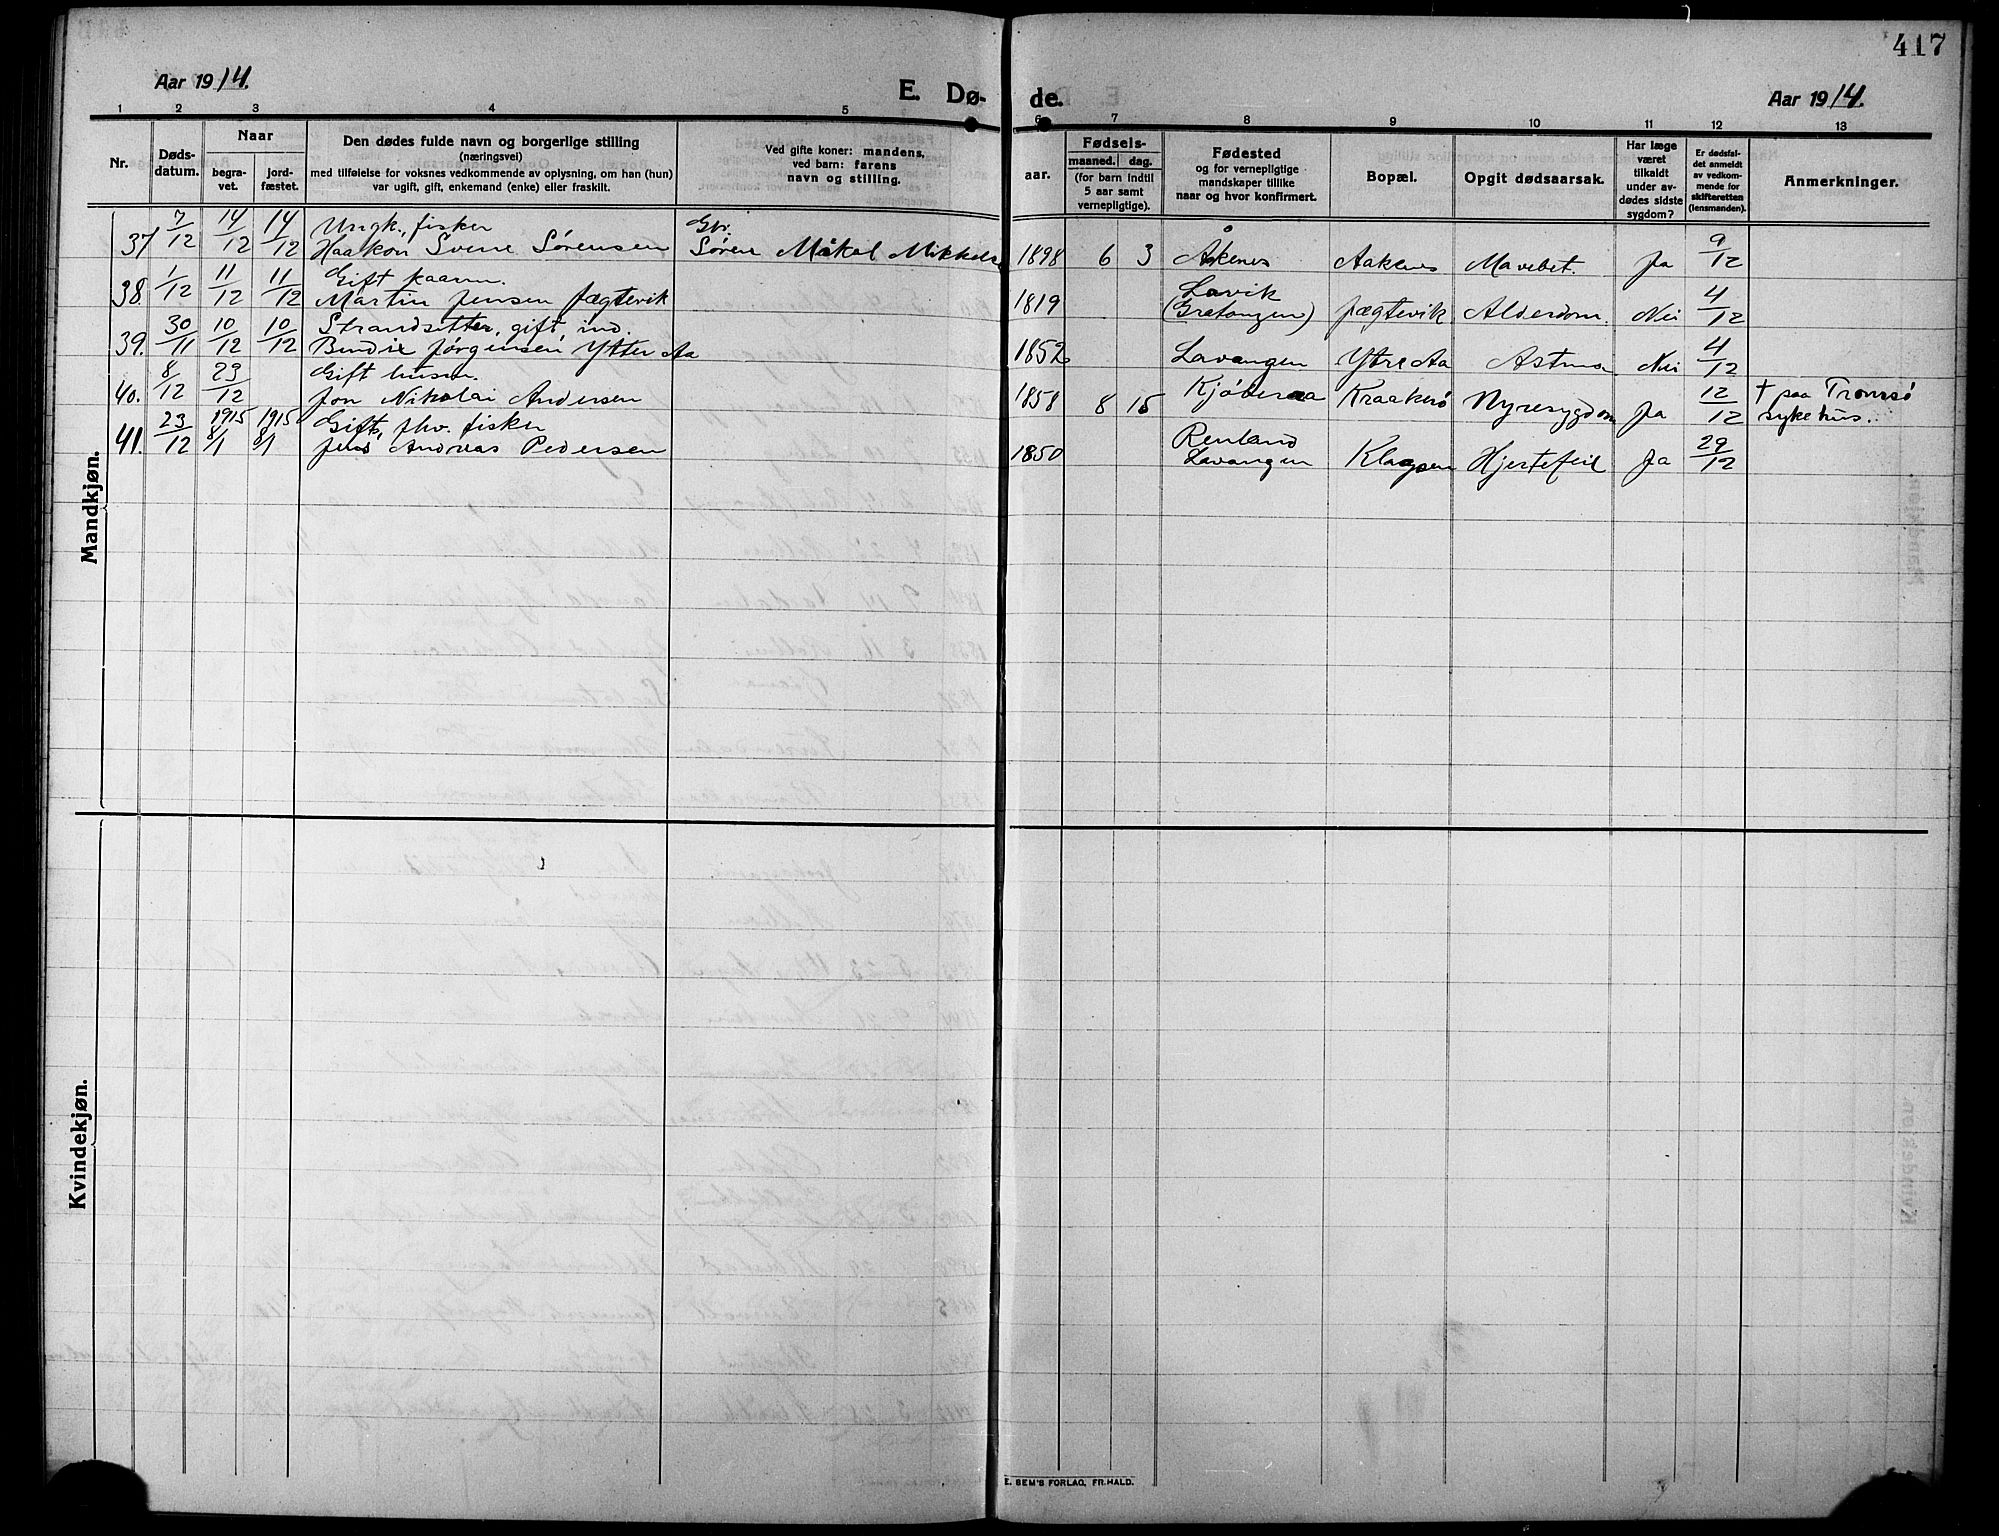 417
Aar 1914.
E. Dø-
de.
Aar 1914.
1 2 3 4 5 6 7 8 9 10 11 12 13
Nr.
Døds-
datum.
Naar
begra-
vet.
jord-
fæstet.
Den dødes fulde navn og borgerlige stilling
(næringsvei)
med tilføielse for voksnes vedkommende av oplysning, om han (hun)
var ugift, gift, enkemand (enke) eller fraskilt.
Ved gifte koner: mandens,
ved barn: farens
navn og stilling.
Fødsels-
aar.
maaned. dag.
(for barn indtil
5 aar samt
vernepligtige).
Fødested
og for vernepligtige
mandskaper tillike
naar og hvor konfirmert.
Bopæl.
Opgit dødsaarsak.
Har læge
været
tilkaldt
under av-
dødes sidste
sygdom?
Er dødsfal-
det anmeldt
av vedkom-
mende for
skifteretten
(lensmanden).
Anmerkninger.
Mandkjøn.
7/12 14/12 14/12 Ungk., fisker Gbr.
37 Haakon Svene Sørensen Søren Mikal Mikkels. 1898 6 3 Åkenes Aakenes Mavebet. Ja 9/12
1/12 11/12 11/12 Gift kaarm. Lavik
38 Martin Jensen Jægtevik 1819 (Gratangen) Jægtevik Alderdom. Nei 4/12
30/11 10/12 10/12 Strandsitter, gift, ind.
39. Bendix Jørgensen Ytter Aa 1852 Lavangen Ytre Aa Astma Nei 4/12
8/12 29/12 Gift husm.
40. Jon Nikolai Andersen 1858 8 15 Kraakerø Nyresygdom Ja 12/12 † paa Tromsø
sykehus.
23/12 1915 8/1 1915 8/1 Gift, fhv. fisker Renland
41. Jens Andreas Pedersen 1850 Lavangen Hjertefeil Ja 29/12
Kvindekjøn.
E. SEM'S FORLAG, FR.HALD.